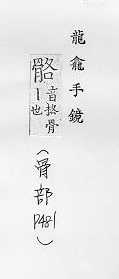 龍龕手鏡
骼音挌骨丨也(骨部P481)